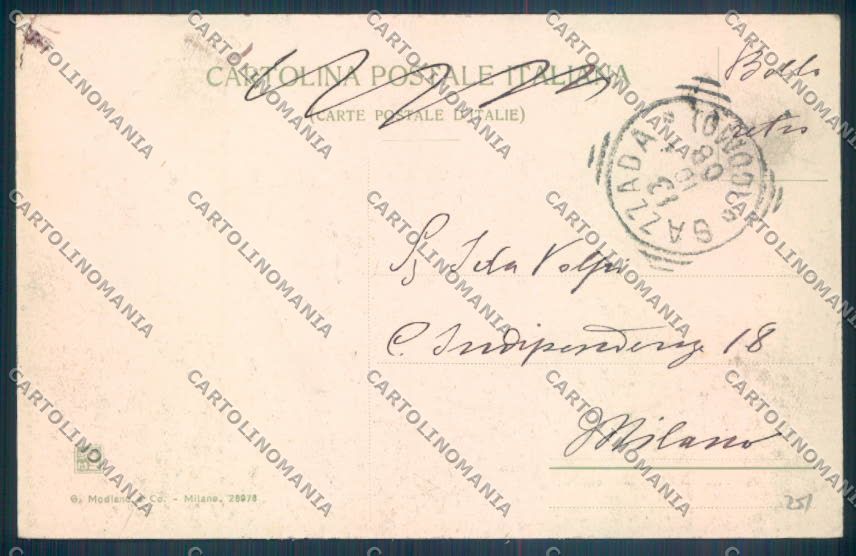 CARTOLINA POSTALE ITALIANA
(CARTE POSTALE D'ITALIE)
Bollo
retro
GAZZADA (COMO)
13 10 08
Sig Ida Volpi
C. Indipendenza 18
Milano
G. Modiano & Co. - Milano. 28978
251
CARTOLINOMANIA